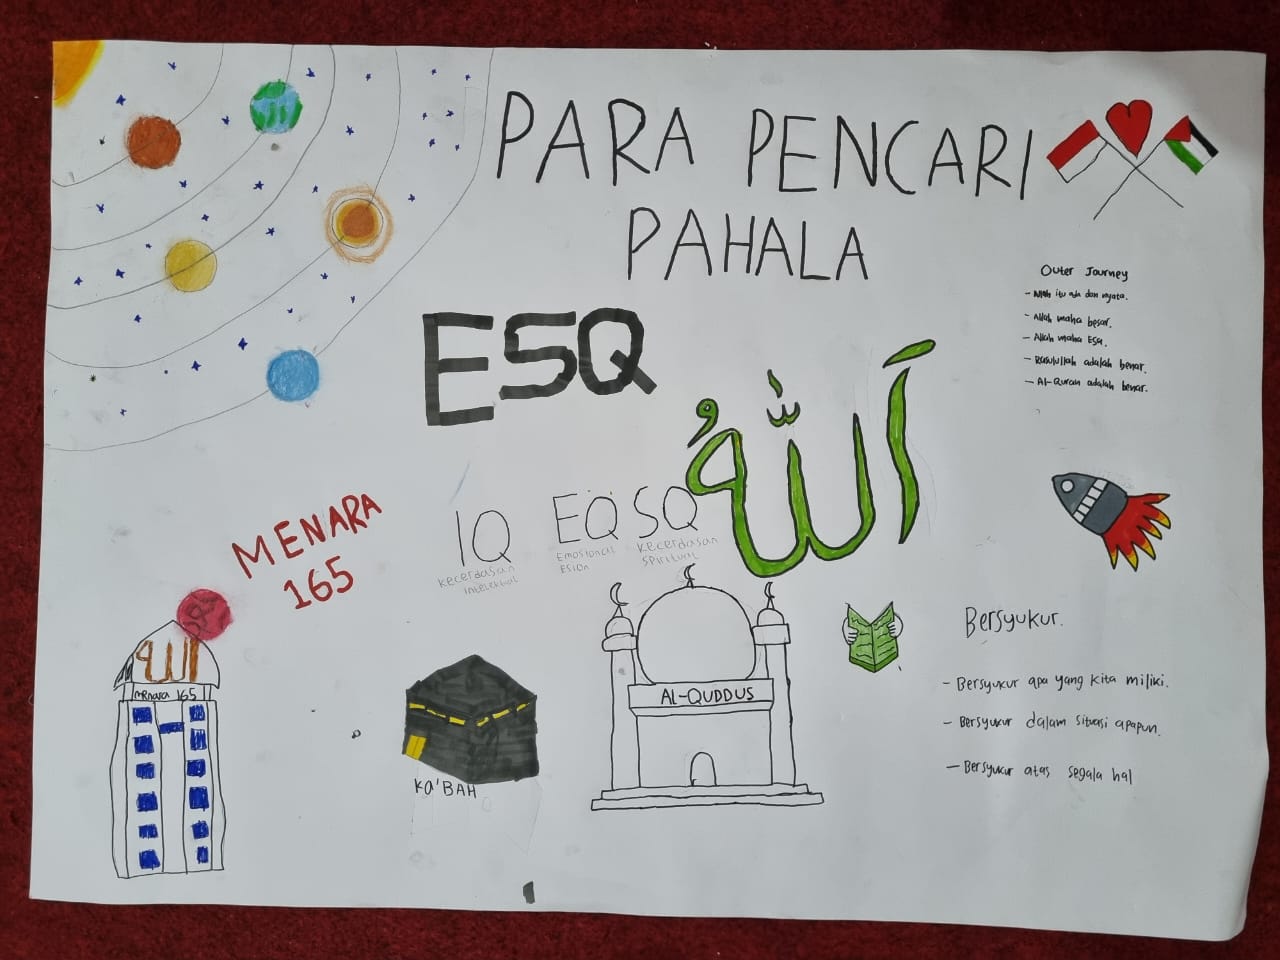 PARA PENCARI
PAHALA
Outer Journey
- Allah itu ada dan nyata.
- Allah maha besar.
- Allah maha Esa.
- Rasulullah adalah benar.
- Al-Quran adalah benar.
ESQ
اَللّٰهُ
MENARA
165
IQ
Kecerdasan
intelektual
EQ
Emosional
Esion
SQ
Kecerdasan
Spiritual
الله
Menara 165
KA'BAH
AL-QUDDUS
Bersyukur.
- Bersyukur apa yang kita miliki.
- Bersyukur dalam situasi apapun.
- Bersyukur atas segala hal